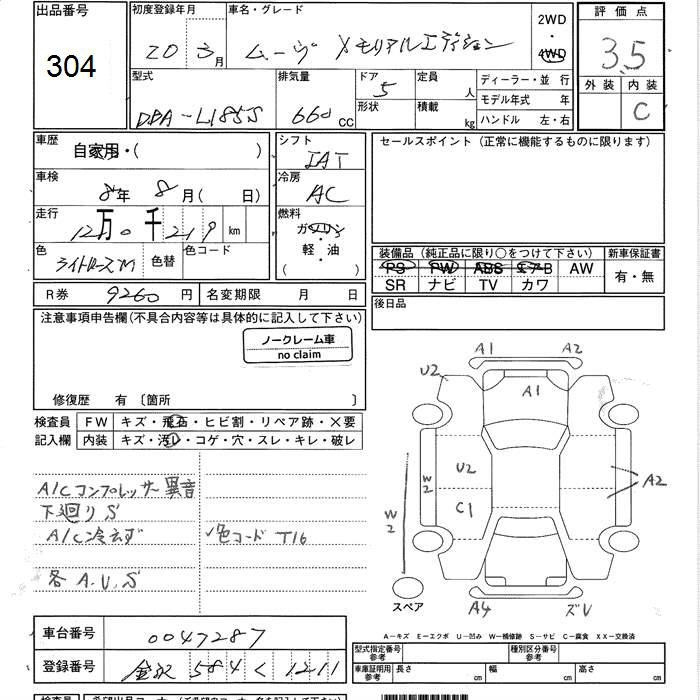 出品番号 304
初度登録年月 20 3月
車名・グレード ムーヴ メモリアルエディション
2WD・4WD
評価点 3.5
外装 内装 C
型式 DBA-L185S
排気量 660 CC
ドア 5 形状
定員 人 積載 kg
ディーラー・並行
モデル年式 年
ハンドル 左・右
車歴 自家用・( )
シフト IAT
セールスポイント (正常に機能するものに限ります)
車検 8年 8月( 日)
冷房 AC
走行 12万0千219 km
燃料 ガソリン・軽・油 ( )
色 ライトローズM 色替 色コード
装備品 (純正品に限り○をつけて下さい) 新車保証書
PS PW ABS エアB AW 有・無
SR ナビ TV カワ
R券 9260 円 名変期限 月 日
後日品
注意事項申告欄(不具合内容等は具体的に記入して下さい)
ノークレーム車
no claim
修復歴 有 〔箇所 〕
検査員 FW キズ・飛石・ヒビ割・リペア跡・×要
記入欄 内装 キズ・汚レ・コゲ・穴・スレ・キレ・破レ
A/Cコンプレッサー異音
下廻りS
A/C冷えず 色コード T16
各A,U,S
A1 A2
U2 A1
U2 W2
C1
A2
W2
スペア A4 ズレ
A－キズ E－エクボ U－凹み W－補修跡 S－サビ C－腐食 XX－交換済
車台番号 0047287
登録番号 金沢 584 く 1211
型式指定番号 参考 種別区分番号 参考
車庫証明用 参考 長さ cm 幅 cm 高さ cm
検査員